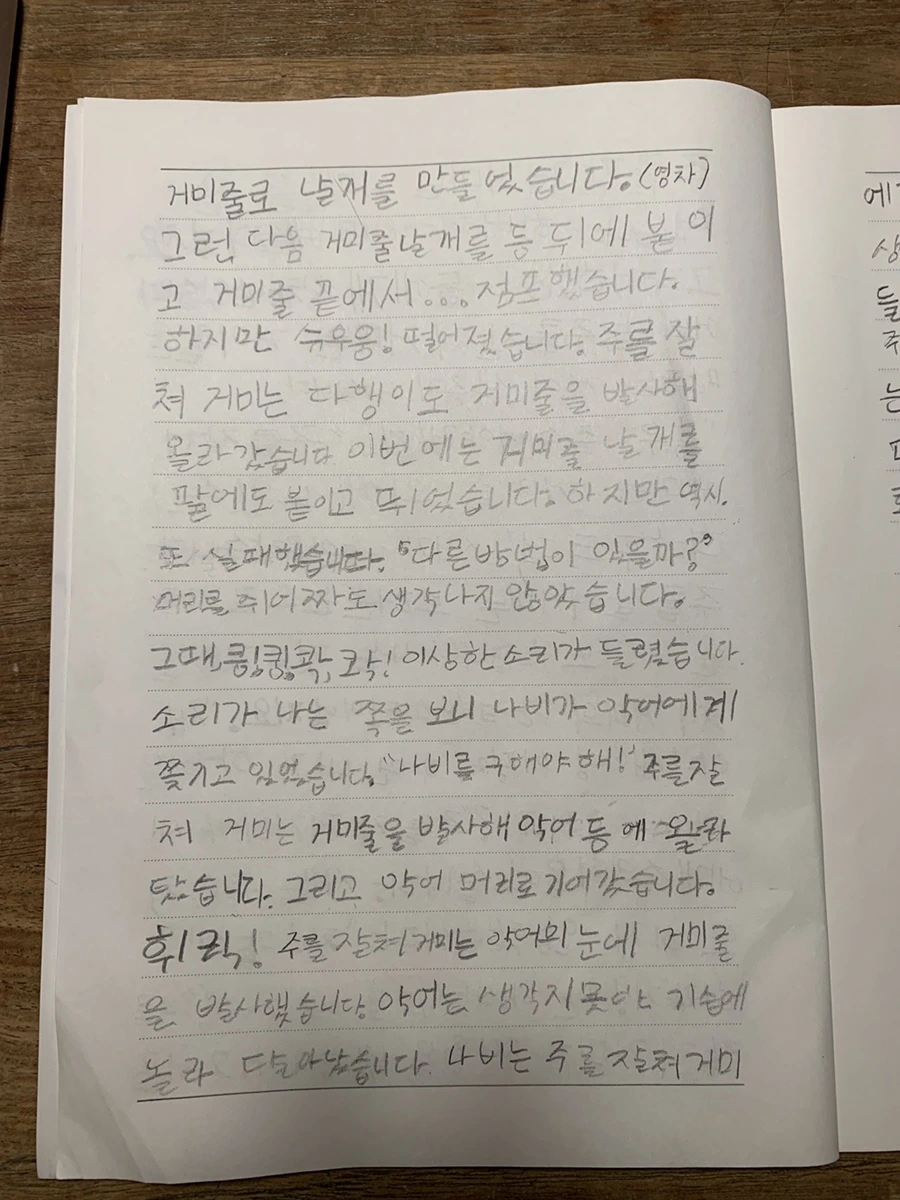 거미줄로 날개를 만들었습니다.(영차)
그런, 다음 거미줄날개를 등 뒤에 붙이
고 거미줄 끝에서... 점프했습니다.
하지만 슈우웅! 떨어졌습니다. 주를 잘
쳐 거미는 다행이도 거미줄을 발사해
올라갔습니다 이번에는 거미줄 날개를
팔에도 붙이고 뛰었습니다. 하지만 역시.
또 실패했습니다. "다른방법이 있을까?"
머리를 쥐어짜도 생각나지 않았습니다.
그때, 쿵!쿵!콱, 콰! 이상한소리가 들렸습니다.
소리가 나는 쪽을 보니 나비가 악어에게
쫓기고 있었습니다. "나비를 구해야해!" 주를잘
쳐 거미는 거미줄을 발사해 악어 등에 올라
탔습니다. 그리고 악어 머리로 기어갔습니다.
휘릭! 주를잘쳐거미는 악어의 눈에 거미줄
을 발사했습니다 악어는, 생각지 못한 기습에
놀라 달아났습니다. 나비는 주를잘쳐거미
에
생
들
주
는